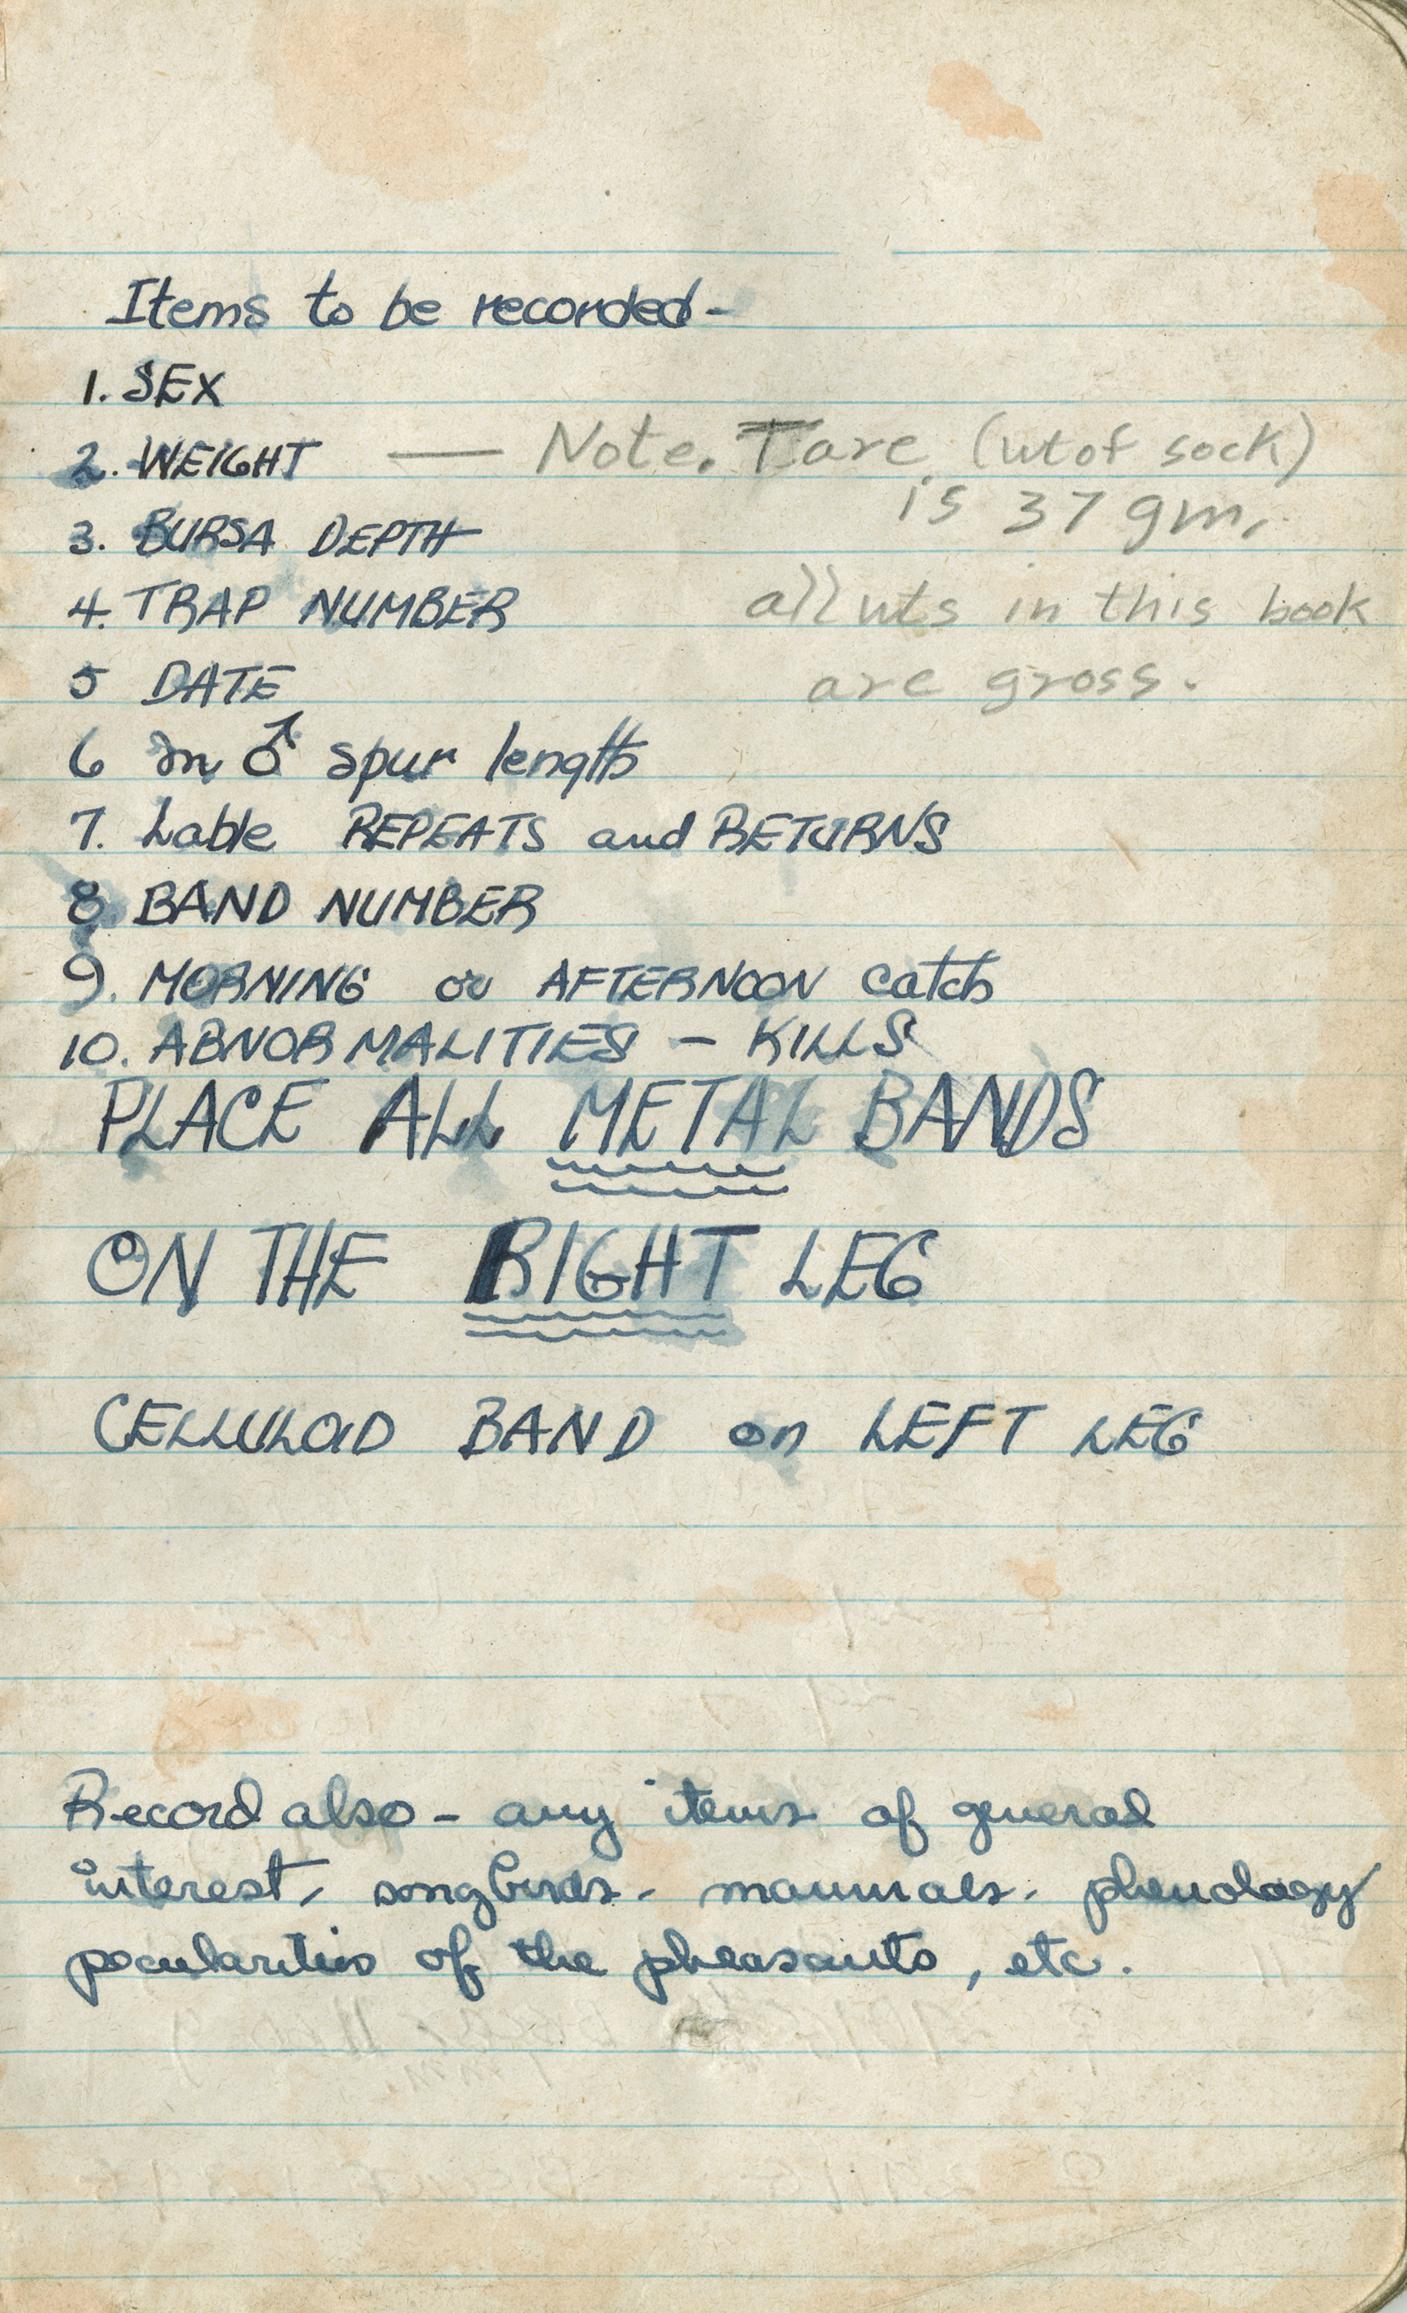 Items to be recorded-
1. SEX
2. WEIGHT — Note. Tare (wt of sock)
is 37 gm.
3. BURSA DEPTH
4. TRAP NUMBER all wts in this book
5 DATE are gross.
6 In ♂ spur length
7. Lable REPEATS and RETURNS
8. BAND NUMBER
9. MORNING or AFTERNOON catch
10. ABNORMALITIES - KILLS
PLACE ALL METAL BANDS
ON THE RIGHT LEG
CELLULOID BAND on LEFT LEG
Record also - any items of general
interest, songbirds, mammals, phenology
pecularities of the pheasants, etc.